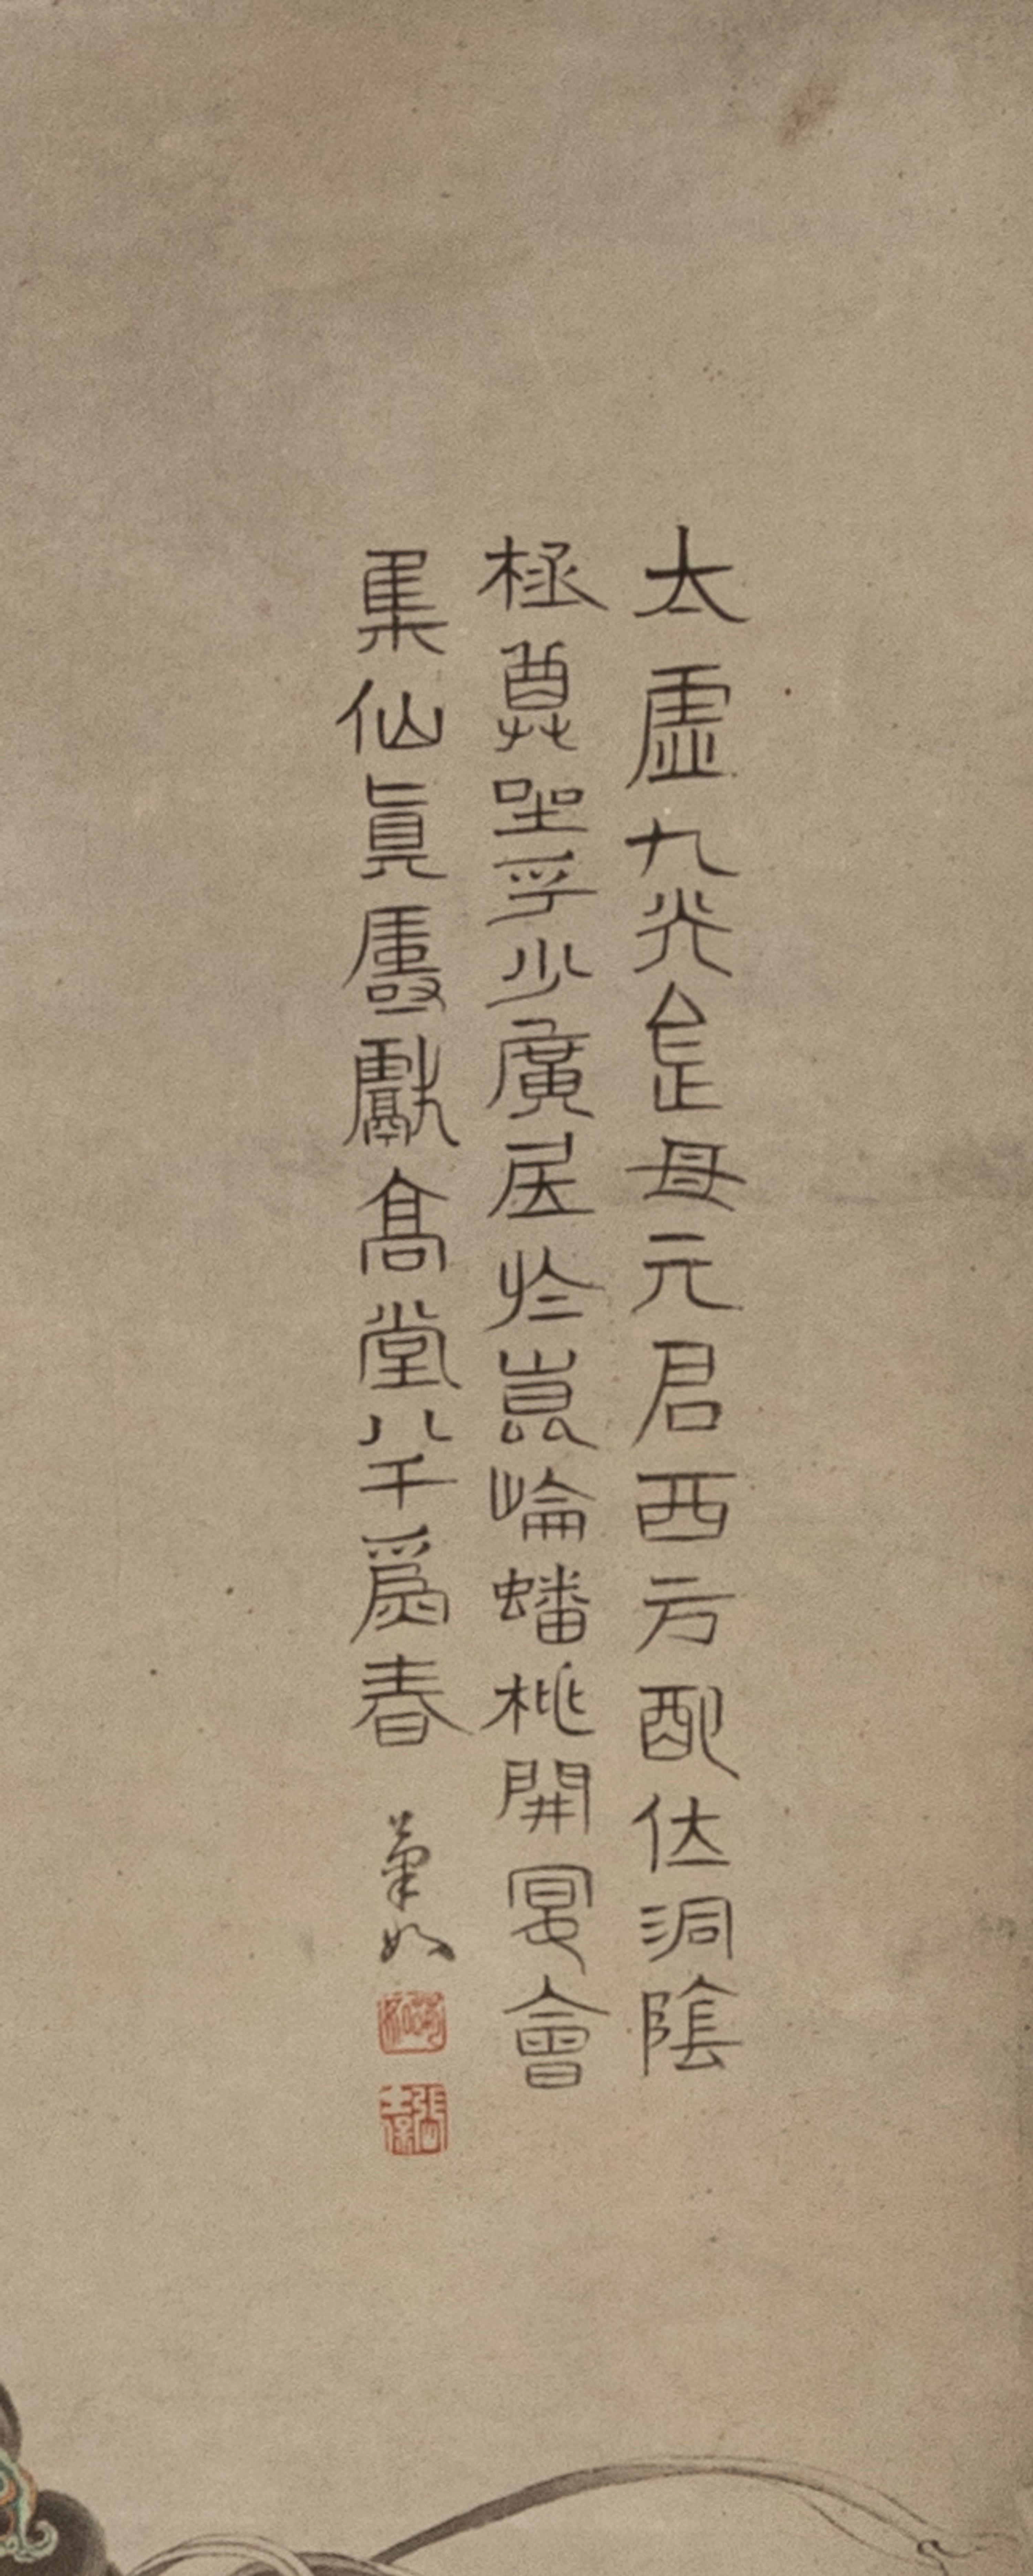 太虛九光母元君西方配位洞陰
極尊坐乎少廣居於崑崙蟠桃開宴會
集仙真壽獻高堂八千爲春